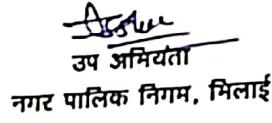 उप अभियंता
नगर पालिक निगम, भिलाई